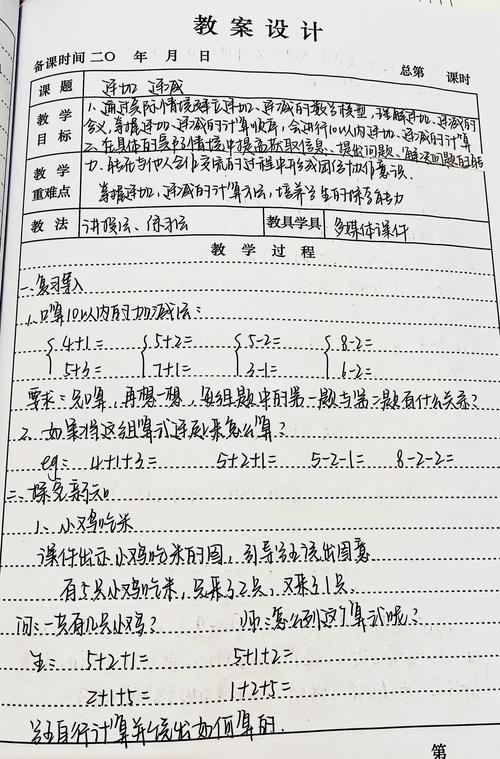 教案设计
备课时间 二〇 年 月 日 总第 课时
课题 连加 连减
教学目标 1.通过实际情境建立连加、连减的数学模型，理解连加、连减的
含义，掌握连加、连减的计算顺序，会进行10以内连加、连减的计算
2.在具体的 情境中提高获取信息、提出问题、解决问题的能
力，能在与他人合作交流的过程中形成团结协作意识。
教学重难点 掌握连加，连减的计算方法，培养学生的 能力
教法 讲授法、练习法 教具学具 多媒体课件
教学过程
一.复习导入
1.口算10以内的加减法：
4+1= 5+2= 5-2= 8-2=
5+3= 7+1= 3-1= 6-2=
要求：先口算，再想一想，每组题中的第一题与第二题有什么关系？
2.如果将这组算式连起来怎么算？
eg： 4+1+3= 5+2+1= 5-2-1= 8-2-2=
二.探究新知
1、小鸡吃米
课件出示小鸡吃米的图，引导学生说出图意
有5只小鸡吃米，先来了2只，又来了1只
问：一共有几只小鸡？ 师：怎么列这个算式呢？
生： 5+2+1= 5+1+2=
2+1+5= 1+2+5=
学生自行计算并说出如何算的.
第